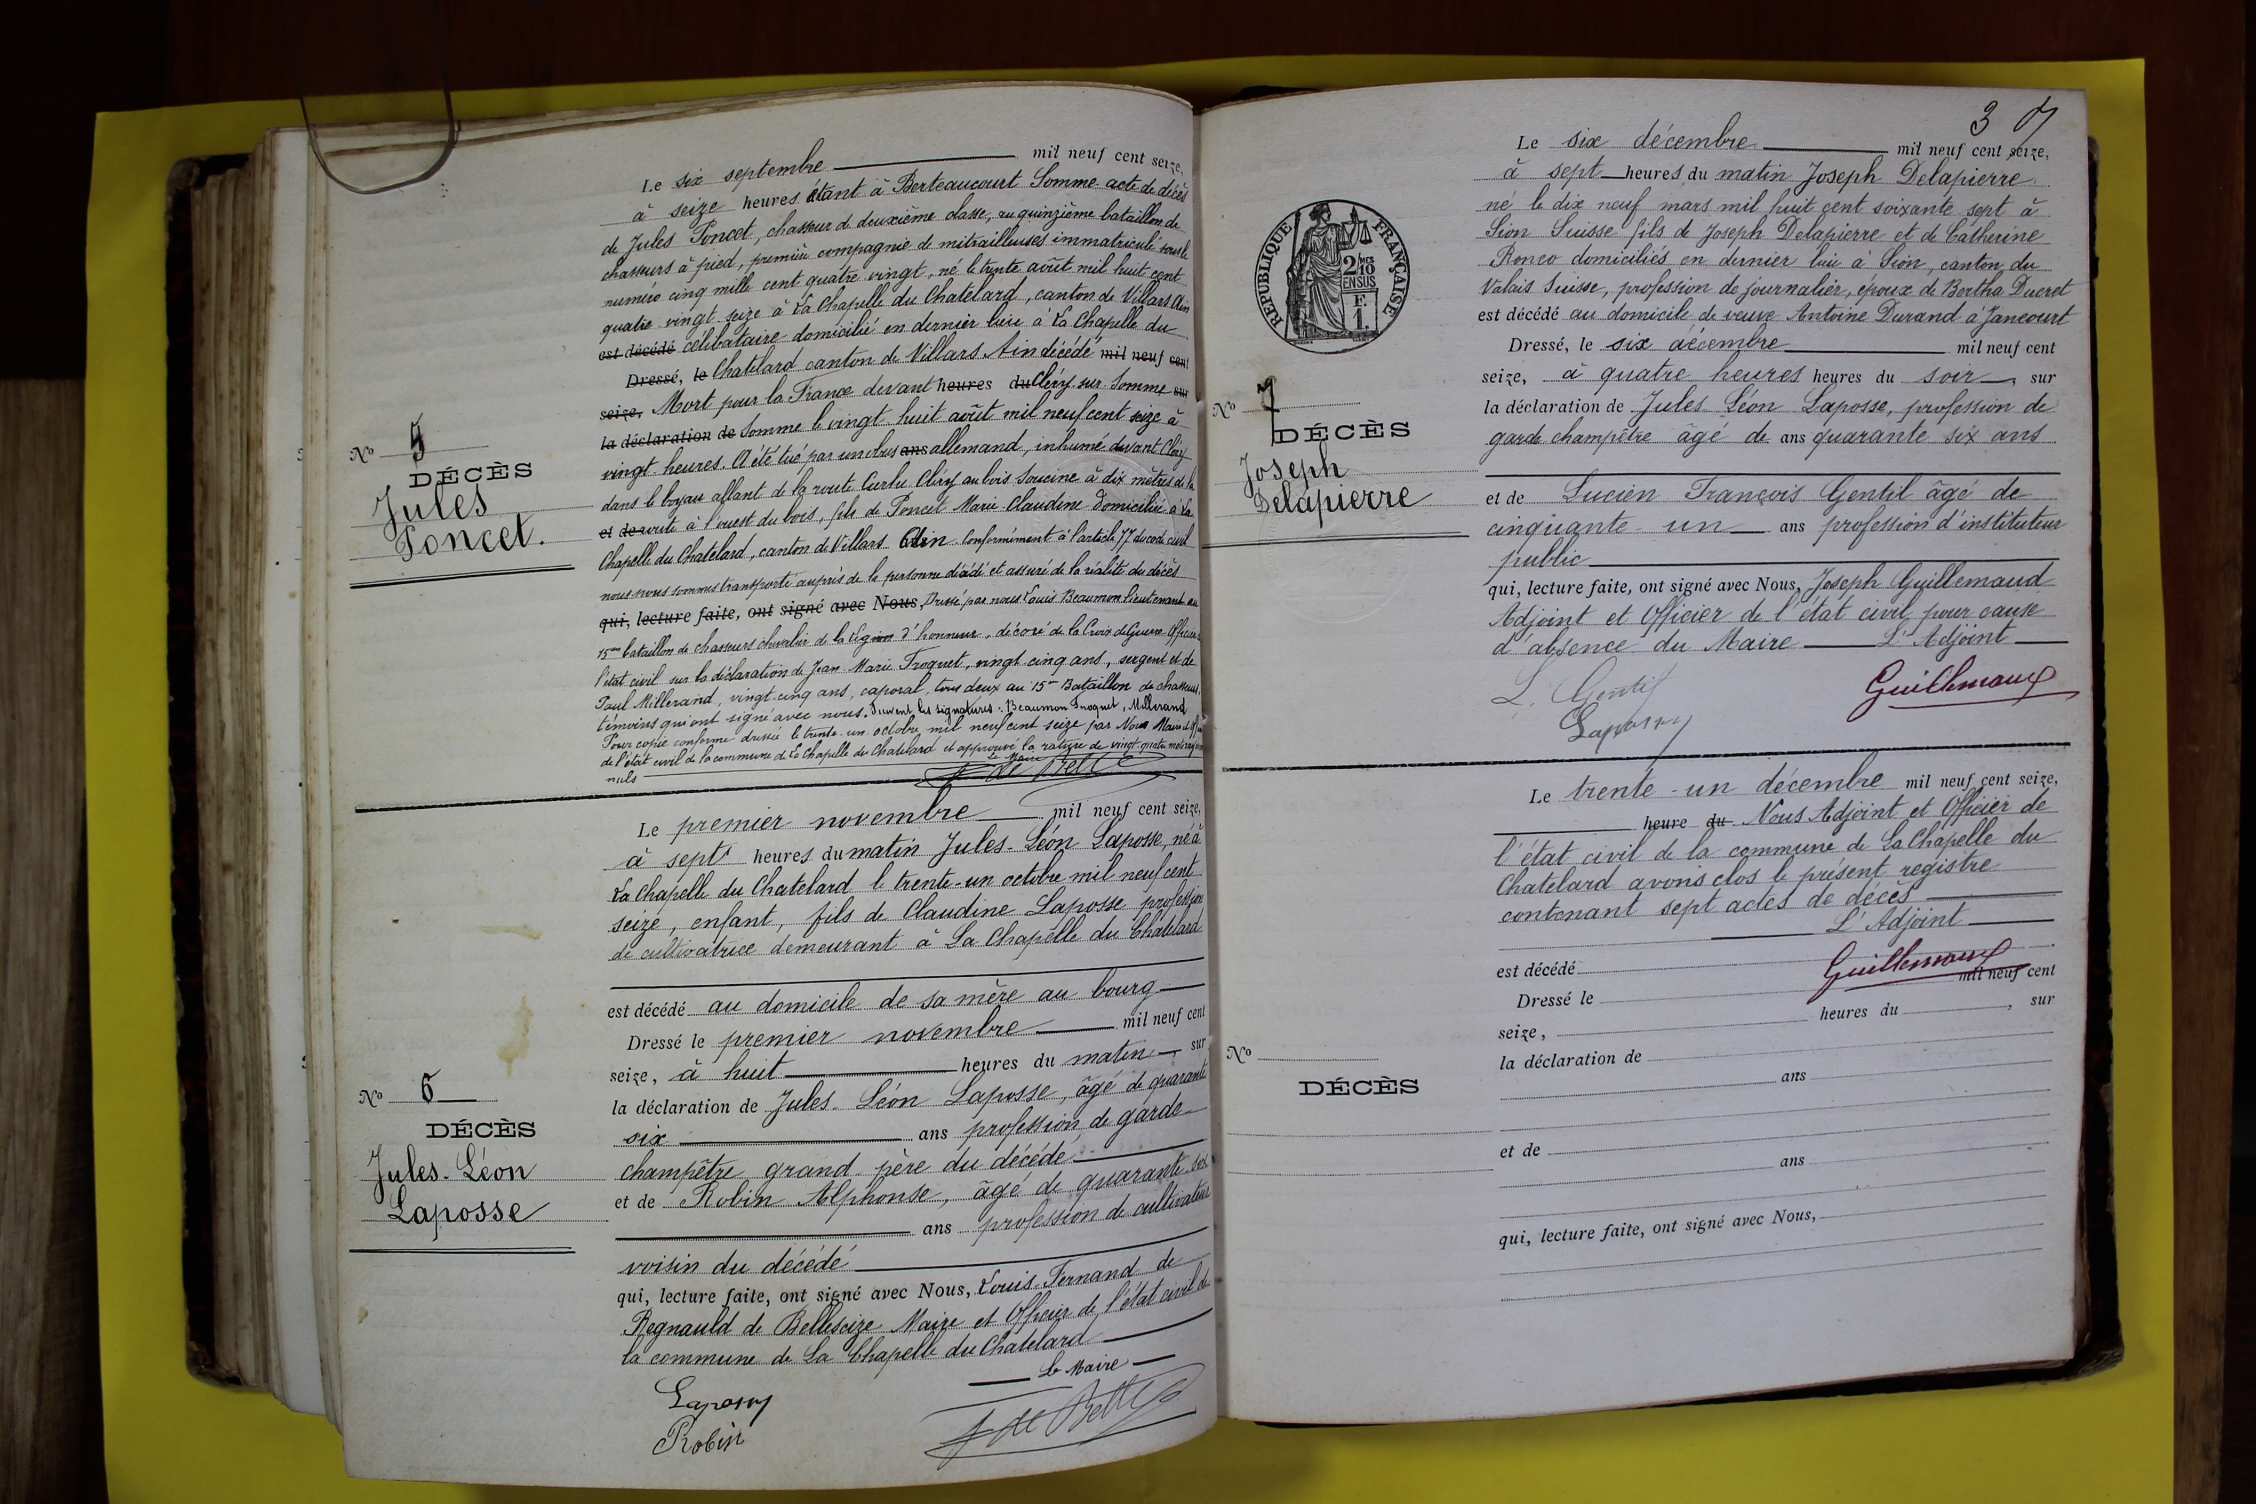 Le six septembre mil neuf cent seize,
à seize heures étant à Berteaucourt Somme acte de décès
de Jules Poncet, chasseur de deuxième classe, au quinzième bataillon de
chasseurs à pied, première compagnie de mitrailleuses immatriculé sous le
numéro cinq mille cent quatre vingt, né le trente août mil huit cent
quatre vingt seize à La Chapelle du Chatelard, canton de Villars Ain
est décédé célibataire domicilié en dernier lieu à La Chapelle du
Dressé, le Chatelard canton de Villars Ain décédé mil neuf cent
seize, Mort pour la France devant heures du Cléry sur Somme sur
la déclaration de Somme le vingt huit août mil neuf cent seize à
vingt heures. A été tué par un obus ans allemand, inhumé devant Cléry
dans le boyau allant de la route Curlu Cléry au bois Soucine à dix mètres de la
et de route à l'ouest du bois, fils de Poncet Marie Claudine domiciliée à La
Chapelle du Chatelard, canton de Villars Ain Conformément à l'article 77 du code civil
nous nous sommes transporté auprès de la personne décédé et assuré de la réalité du décès
qui, lecture faite, ont signé avec Nous, Dressé par nous Louis Beaumon lieutenant au
15me bataillon de chasseurs chevalier de la légion d'honneur, décoré de la Croix de Guerre Officier de
l'état civil sur la déclaration de Jean Marie Troquet, vingt cinq ans, sergent et de
Paul Millerand, vingt-cinq ans, caporal, tous deux au 15me Bataillon de chasseurs,
témoins qui ont signé avec nous. Suivent les signatures : Beaumon Troquet, Millerand
Pour copie conforme dressée le trente-un octobre mil neuf cent seize par Nous Maire et
de l'état civil de la commune de La Chapelle du Chatelard et approuvé la rature de vingt-quatre mots rayés
nuls
Le Maire
de Belle
No 5
DÉCÈS
Jules
Poncet.
Le premier novembre mil neuf cent seize,
à sept heures du matin Jules-Léon Laposse, né à
La Chapelle du Chatelard le trente-un octobre mil neuf cent
seize, enfant, fils de Claudine Laposse profession
de cultivatrice demeurant à La Chapelle du Chatelard
est décédé au domicile de sa mère au bourg
Dressé le premier novembre mil neuf cent
seize, à huit heures du matin, sur
la déclaration de Jules-Léon Laposse, âgé de quarante
six ans profession de garde
champêtre grand père du décédé
et de Robin Alphonse, âgé de quarante six
ans profession de cultivateur
voisin du décédé
qui, lecture faite, ont signé avec Nous, Louis-Fernand de
Regnauld de Bellescize Maire et Officier de l'état civil de
la commune de La Chapelle du Chatelard
Le Maire
Laposse
Robin
de Belle
No 6
DÉCÈS
Jules-Léon
Laposse
3
Le six décembre mil neuf cent seize,
à sept heures du matin Joseph Delapierre
né le dix neuf mars mil huit cent soixante sept à
Sion Suisse fils de Joseph Delapierre et de Catherine
Ronco domiciliés en dernier lieu à Sion, canton du
Valais Suisse, profession de journalier, époux de Bertha Ducret
est décédé au domicile de veuve Antoine Durand à Jancourt
Dressé, le six décembre mil neuf cent
seize, à quatre heures heures du soir, sur
la déclaration de Jules Léon Laposse, profession de
garde champêtre âgé de ans quarante six ans
et de Lucien François Gentil âgé de
cinquante-un ans profession d'instituteur
public
qui, lecture faite, ont signé avec Nous, Joseph Guillemaud
Adjoint et Officier de l'état civil pour cause
d'absence du Maire L'Adjoint
L. Gentil
Laposse
Guillemaud
RÉPUBLIQUE FRANÇAISE
2/10 EN SUS
1 F.
No 7
DÉCÈS
Joseph
Delapierre
Le trente-un décembre mil neuf cent seize,
heure du Nous Adjoint et Officier de
l'état civil de la commune de La Chapelle du
Chatelard avons clos le présent registre
contenant sept actes de décès
L'Adjoint
Guillemaud
est décédé
Dressé le mil neuf cent
seize, heures du , sur
la déclaration de
ans
et de
ans
qui, lecture faite, ont signé avec Nous,
No
DÉCÈS